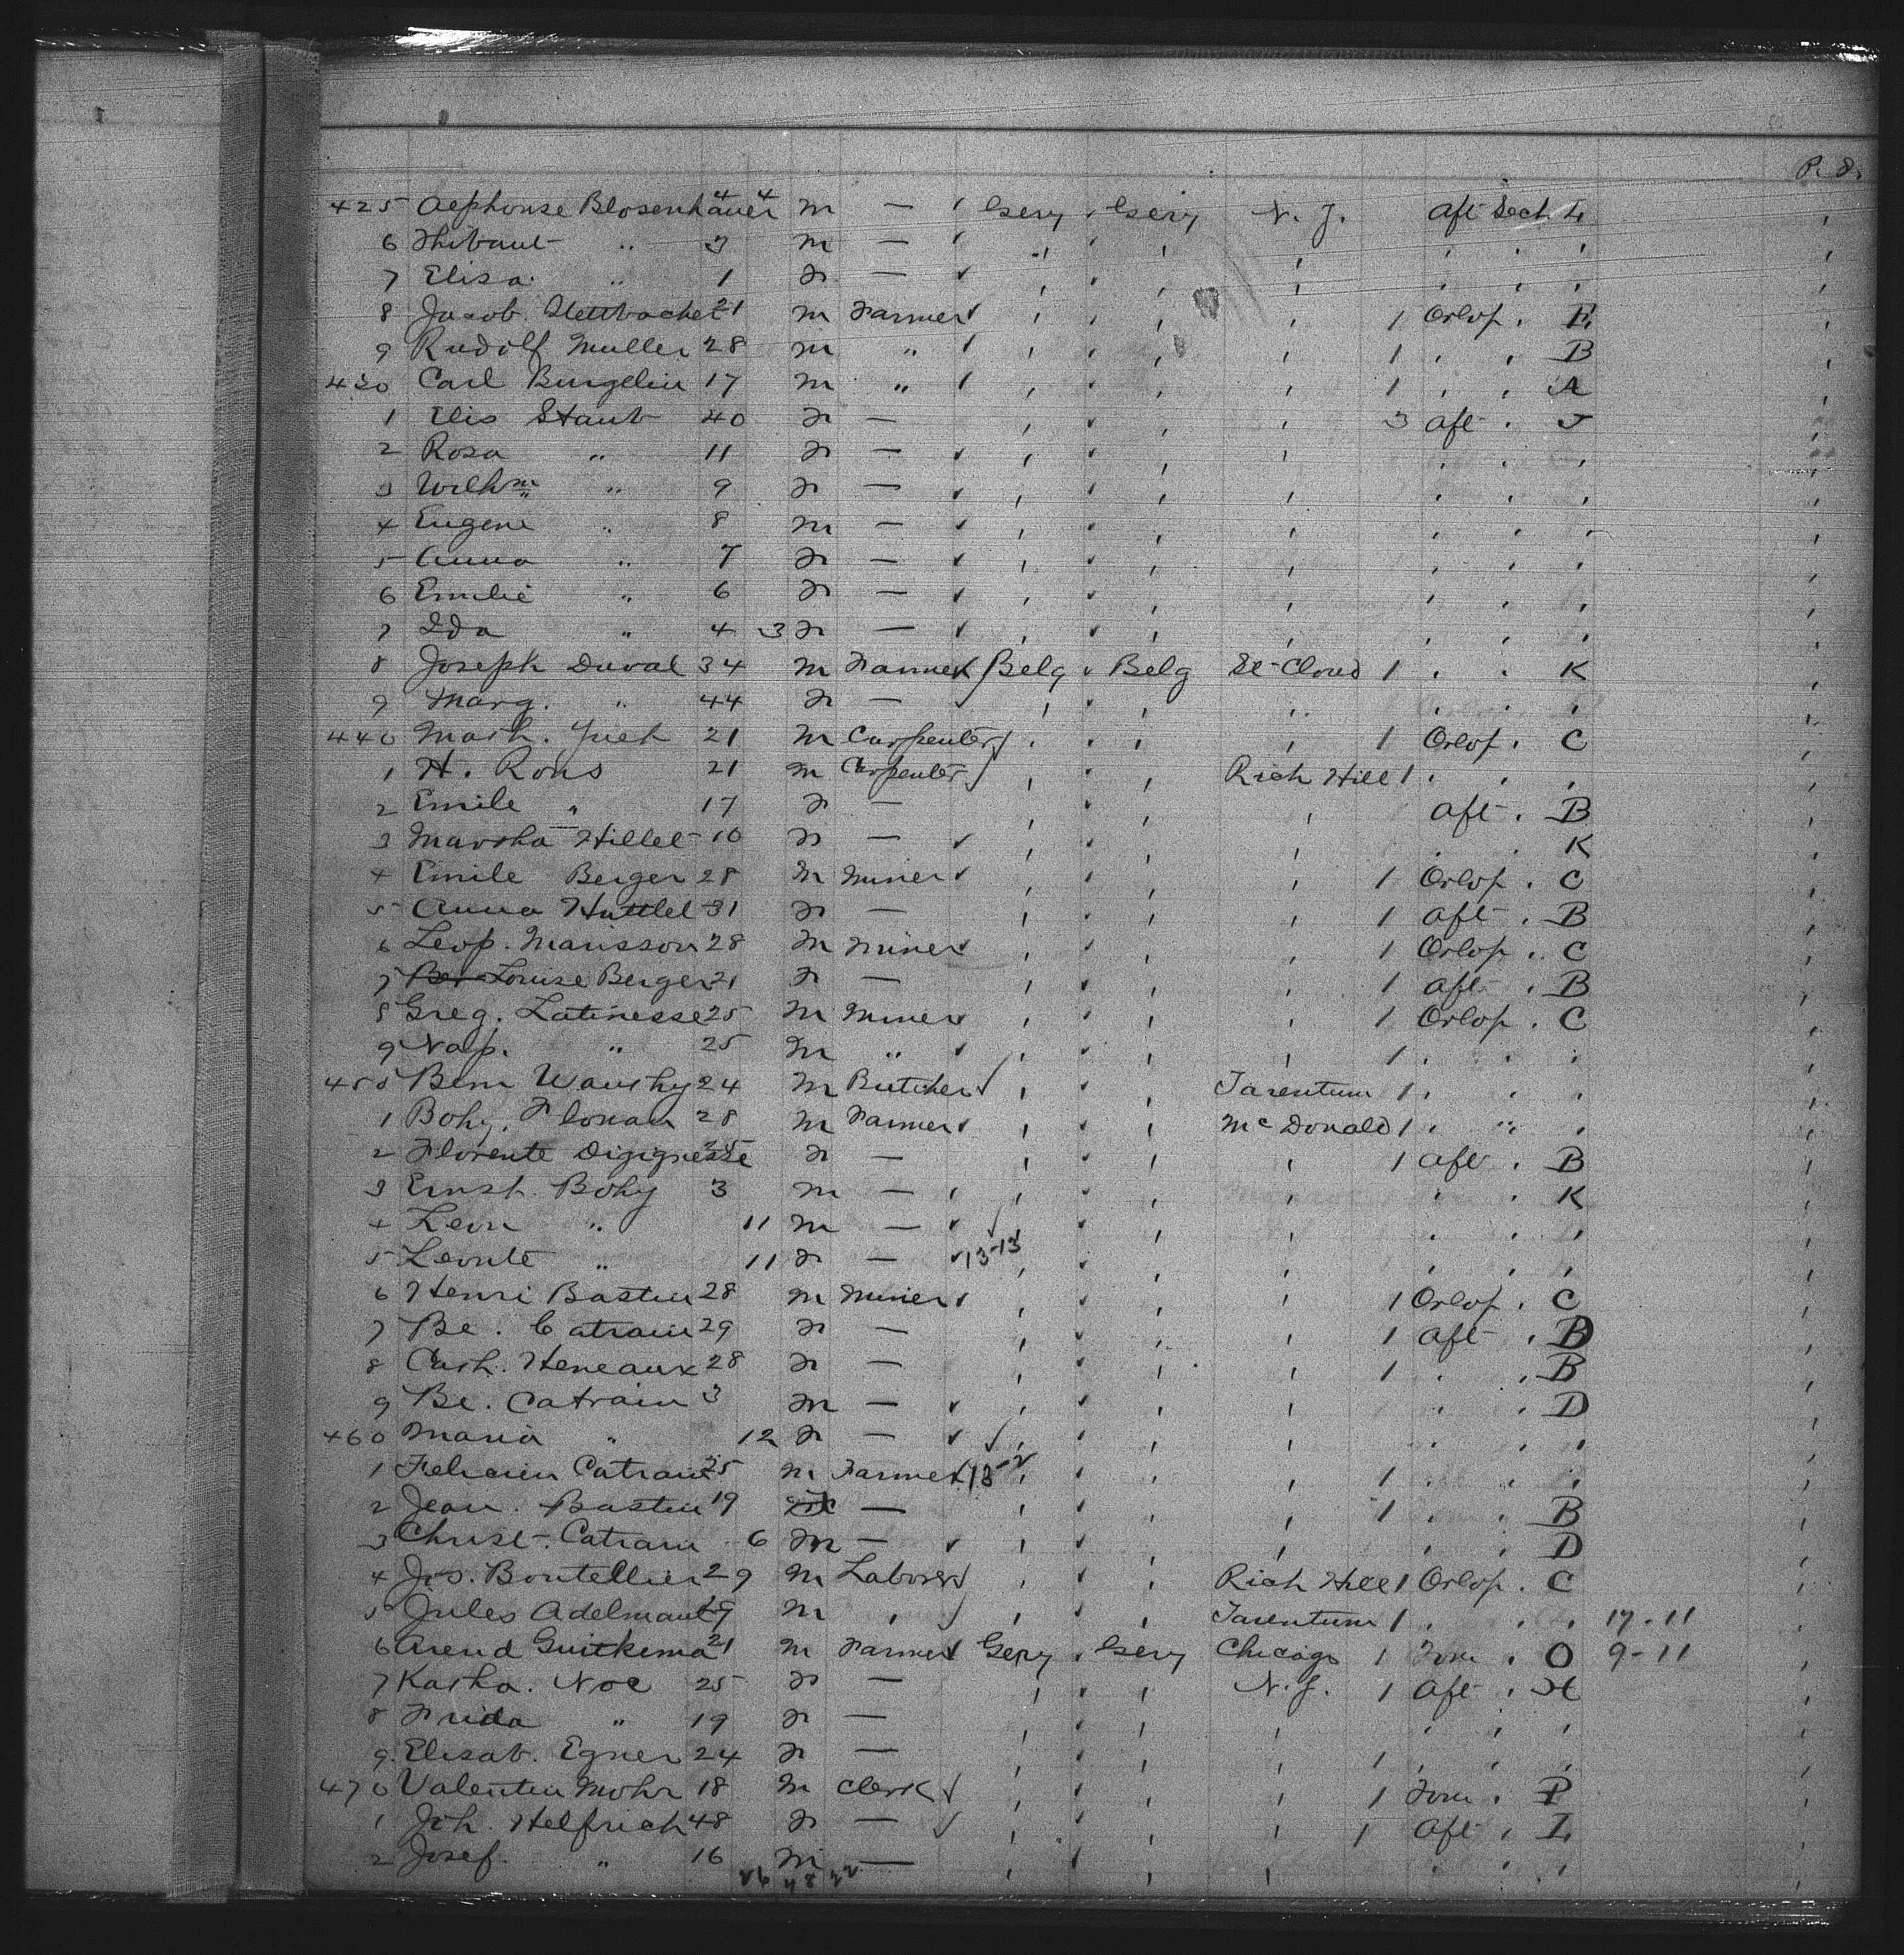 P. S.
425 Alphonse Blosenhauer 4 4 m — ✓ Gery ✓ Gery N. J. Aft Sect. L
6 Thibaut " 3 m — ✓ " ✓ ' ' ' ' '
7 Elisa " 1 f — ✓ ' ✓ ' ' ' ' '
8 Jacob 21 m Farmer ✓ ' ' ' ' 1 Orlop ' E
9 Rudolf Muller 28 m " ✓ ' ' ' ' 1 ' ' B
430 Carl Burgelin 17 m " ✓ ' ✓ ' ' 1 ' ' A
1 Elis Staub 40 f — ' ✓ ' ' 3 Aft ' J
2 Rosa " 11 f — ✓ ' ✓ ' ' ' ' '
3 Wilhm " 9 f — ✓ ' ✓ ' ' ' ' '
4 Eugene " 8 m — ✓ ' ✓ ' ' ' ' '
5 Anna " 7 f — ✓ ' ✓ ' ' ' ' '
6 Emilie " 6 f — ✓ ' ✓ ' ' ' ' '
7 Ida " 4 3 f — ✓ ' ✓ ' ' ' ' '
8 Joseph Duval 34 m Farmer ✓ Belg ✓ Belg St Cloud 1 ' ' K
9 Marg. " 44 f — ✓ ' ✓ ' " ' ' '
440 Math. 21 m Carpenter ✓ ' ✓ ' ' 1 Orlop ' C
1 H. Rons 21 m Carpenter ✓ ' ✓ ' Rich Hill 1 ' ' '
2 Emile " 17 f — ' ✓ ' ' Aft ' B
3 Martha Hillet 10 f — ✓ ' ✓ ' ' ' ' K
4 Emile Berger 28 m Miner ✓ ' ✓ ' ' 1 Orlop ' C
5 Anna Huttlet 31 f — ' ✓ ' ' 1 Aft ' B
6 Leop. Marisson 28 m Miner ✓ ' ✓ ' ' 1 Orlop ' C
7 Louise Berger 21 f — ' ✓ ' ' 1 Aft ' B
8 Greg. Latinesse 25 m Miner ✓ ' ✓ ' ' 1 Orlop ' C
9 Nap. " 25 m " ✓ ' ✓ ' ' 1 ' ' '
450 Bem 24 m Butcher ✓ ' ✓ ' Tarentum 1 ' ' '
1 Bohy, Florian 28 m Farmer ✓ ' ✓ ' McDonald 1 ' " '
2 Florente 25 f — ' ✓ ' ' 1 Aft ' B
3 Ernst. Bohy 3 m — ✓ ' ✓ ' ' ' ' K
4 Leon " 11 m — ✓ ' ✓ ' ' ' ' '
5 Leonte " 11 f — ✓ 13-13 ' ✓ ' ' ' ' '
6 Henri Bastin 28 m Miner ✓ ' ✓ ' ' 1 Orlop ' C
7 Be. Catrain 29 f — ' ✓ ' ' 1 Aft ' B
8 Cath. Heneaux 28 f — ' ✓ ' ' 1 ' ' B
9 Be. Catrain 3 m — ✓ ' ✓ ' ' ' ' D
460 Maria " 12 f — ✓ ' ✓ ' ' ' ' '
1 Felicien Catrain 25 m Farmer ✓ 13-2 ' ✓ ' ' 1 ' ' '
2 Jean. Bastin 19 — ' ✓ ' ' 1 ' ' B
3 Christ. Catrain 6 m — ✓ ' ✓ ' ' ' ' D
4 Jos. Boutellier 29 m Laborer ✓ ' ✓ ' Rich Hill 1 Orlop ' C
5 Jules Adelmant 29 m ' ✓ ' ✓ ' Tarentum 1 ' ' ' 17-11
6 Arend Guitkema 21 m Farmer ✓ Gery ✓ Gery Chicago 1 Form ' O 9-11
7 Katha. Noe 25 f — ' ✓ ' N. J. 1 Aft ' H
8 Frida " 19 f — ' ✓ ' ' ' ' '
9. Elisab. Egner 24 f — ' ✓ ' ' 1 ' ' '
470 Valentin Mohr 18 m Clerk ✓ ' ✓ ' ' 1 Form ' P
1 Joh. Helfrich 48 f — ✓ ' ✓ ' ' 1 Aft ' L
2 Josef " 16 m — ' ✓ ' ' ' ' '